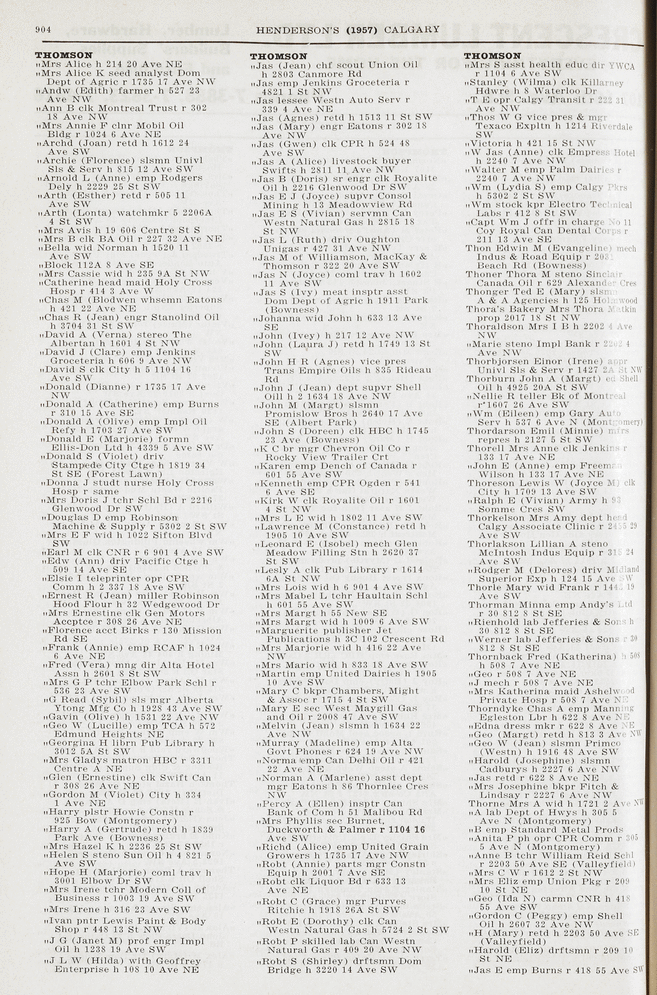 904
HENDERSON'S (1957) CALGARY
THOMSON
„Mrs Alice h 214 20 Ave NE
„Mrs Alice K seed analyst Dom
Dept of Agric r 1735 17 Ave NW
„Andw (Edith) farmer h 527 23
Ave NW
„Ann B clk Montreal Trust r 302
18 Ave NW
„Mrs Annie F clnr Mobil Oil
Bldg r 1024 6 Ave NE
„Archd (Joan) retd h 1612 24
Ave SW
„Archie (Florence) slsmn Univl
Sls & Serv h 815 12 Ave SW
„Arnold L (Anne) emp Rodgers
Dely h 2229 25 St SW
„Arth (Esther) retd r 505 11
Ave SW
„Arth (Lonta) watchmkr 5 2206A
4 St SW
„Mrs Avis h 19 606 Centre St S
„Mrs B clk BA Oil r 227 32 Ave NE
„Bella wid Norman h 1520 11
Ave SW
„Block 112A 8 Ave SE
„Mrs Cassie wid h 235 9A St NW
„Catherine head maid Holy Cross
Hosp r 414 3 Ave W
„Chas M (Blodwen whsemn Eatons
h 421 22 Ave NE
„Chas R (Jean) engr Stanolind Oil
h 3704 31 St SW
„David A (Verna) stereo The
Albertan h 1601 4 St NW
„David J (Clare) emp Jenkins
Groceteria h 606 9 Ave NW
„David S clk City h 5 1104 16
Ave SW
„Donald (Dianne) r 1735 17 Ave
NW
„Donald A (Catherine) emp Burns
r 310 15 Ave SE
„Donald A (Olive) emp Impl Oil
Refy h 1703 27 Ave SW
„Donald E (Marjorie) formn
Ellis-Don Ltd h 4339 5 Ave SW
„Donald S (Violet) driv
Stampede City Ctge h 1819 34
St SE (Forest Lawn)
„Donna J studt nurse Holy Cross
Hosp r same
„Mrs Doris J tchr Schl Bd r 2216
Glenwood Dr SW
„Douglas D emp Robinson
Machine & Supply r 5302 2 St SW
„Mrs E F wid h 1022 Sifton Blvd
SW
„Earl M clk CNR r 6 901 4 Ave SW
„Edw (Ann) driv Pacific Ctge h
509 14 Ave SE
„Elsie I teleprinter opr CPR
Comm h 2 337 18 Ave SW
„Ernest R (Jean) miller Robinson
Hood Flour h 32 Wedgewood Dr
„Mrs Ernestine clk Gen Motors
Accptce r 308 26 Ave NE
„Florence acct Birks r 130 Mission
Rd SE
„Frank (Annie) emp RCAF h 1024
6 Ave NE
„Fred (Vera) mng dir Alta Hotel
Assn h 2601 8 St SW
„Mrs G P tchr Elbow Park Schl r
536 23 Ave SW
„G Read (Sybil) sls mgr Alberta
Ytong Mfg Co h 1928 43 Ave SW
„Gavin (Olive) h 1531 22 Ave NW
„Geo W (Lucille) emp TCA h 572
Edmund Heights NE
„Georgina H librn Pub Library h
3012 5A St SW
„Mrs Gladys matron HBC r 3311
Centre A NE
„Glen (Ernestine) clk Swift Can
r 308 26 Ave NE
„Gordon M (Violet) City h 334
1 Ave NE
„Harry plstr Howie Constn r
925 Bow (Montgomery)
„Harry A (Gertrude) retd h 1839
Park Ave (Bowness)
„Mrs Hazel K h 2236 25 St SW
„Helen S steno Sun Oil h 4 821 5
Ave SW
„Hope H (Marjorie) coml trav h
3001 Elbow Dr SW
„Mrs Irene tchr Modern Coll of
Business r 1003 19 Ave SW
„Mrs Irene h 316 23 Ave SW
„Ivan pntr Lewis Paint & Body
Shop r 448 13 St NW
„J G (Janet M) prof engr Impl
Oil h 1238 19 Ave SW
„J L W (Hilda) with Geoffrey
Enterprise h 108 10 Ave NE
THOMSON
„Jas (Jean) chf scout Union Oil
h 2803 Canmore Rd
„Jas emp Jenkins Groceteria r
4821 1 St NW
„Jas lessee Westn Auto Serv r
339 4 Ave NE
„Jas (Agnes) retd h 1513 11 St SW
„Jas (Mary) engr Eatons r 302 18
Ave NW
„Jas (Gwen) clk CPR h 524 48
Ave SW
„Jas A (Alice) livestock buyer
Swifts h 2811 11 Ave NW
„Jas B (Doris) sr engr clk Royalite
Oil h 2216 Glenwood Dr SW
„Jas E J (Joyce) supvr Consol
Mining h 13 Meadowview Rd
„Jas E S (Vivian) servmn Can
Westn Natural Gas h 2815 18
St NW
„Jas L (Ruth) driv Oughton
Unigas r 427 31 Ave NW
„Jas M of Williamson, MacKay &
Thomson r 322 20 Ave SW
„Jas N (Joyce) coml trav h 1602
11 Ave SW
„Jas S (Ivy) meat insptr asst
Dom Dept of Agric h 1911 Park
(Bowness)
„Johanna wid John h 633 13 Ave
SE
„John (Ivey) h 217 12 Ave NW
„John (Laura J) retd h 1749 13 St
SW
„John H R (Agnes) vice pres
Trans Empire Oils h 835 Rideau
Rd
„John J (Jean) dept supvr Shell
Oill h 2 1634 18 Ave NW
„John M (Margt) slsmn
Promislow Bros h 2640 17 Ave
SE (Albert Park)
„John S (Doreen) clk HBC h 1745
23 Ave (Bowness)
„K C br mgr Chevron Oil Co r
Rocky View Trailer Crt
„Karen emp Dench of Canada r
601 55 Ave SW
„Kenneth emp CPR Ogden r 541
6 Ave SE
„Kirk W clk Royalite Oil r 1601
4 St NW
„Mrs L E wid h 1802 11 Ave SW
„Lawrence M (Constance) retd h
1905 10 Ave SW
„Leonard E (Isobel) mech Glen
Meadow Filling Stn h 2620 37
St SW
„Lesly A clk Pub Library r 1614
6A St NW
„Mrs Lois wid h 6 901 4 Ave SW
„Mrs Mabel L tchr Haultain Schl
h 601 55 Ave SW
„Mrs Margt h 55 New SE
„Mrs Margt wid h 1009 6 Ave SW
„Marguerite publisher Jet
Publications h 3C 102 Crescent Rd
„Mrs Marjorie wid h 416 22 Ave
NW
„Mrs Mario wid h 833 18 Ave SW
„Martin emp United Dairies h 1905
10 Ave SW
„Mary C bkpr Chambers, Might
& Assoc r 1715 4 St SW
„Mary E see West Maygill Gas
and Oil r 2008 47 Ave SW
„Melvin (Jean) slsmn h 1634 22
Ave NW
„Murray (Madeline) emp Alta
Govt Phones r 624 19 Ave NW
„Norma emp Can Delhi Oil r 421
22 Ave NE
„Norman A (Marlene) asst dept
mgr Eatons h 86 Thornlee Cres
NW
„Percy A (Ellen) insptr Can
Bank of Com h 51 Malibou Rd
„Mrs Phyllis sec Burnet,
Duckworth & Palmer r 1104 16
Ave SW
„Richd (Alice) emp United Grain
Growers h 1735 17 Ave NW
„Robt (Annie) parts mgr Constn
Equip h 2001 7 Ave SE
„Robt clk Liquor Bd r 633 13
Ave NE
„Robt C (Grace) mgr Purves
Ritchie h 1918 26A St SW
„Robt E (Dorothy) clk Can
Westn Natural Gas h 5724 2 St SW
„Robt P skilled lab Can Westn
Natural Gas r 409 20 Ave NW
„Robt S (Shirley) drftsmn Dom
Bridge h 3220 14 Ave SW
THOMSON
„Mrs S asst health educ dir YWCA
r 1104 6 Ave SW
„Stanley (Wilma) clk Killarney
Hdwre h 8 Waterloo Dr
„T E opr Calgary Transit r 222 31
Ave NW
„Thos W G vice pres & mgr
Texaco Expltn h 1214 Riverdale
SW
„Victoria h 421 15 St NW
„W Jas (Anne) clk Empress Hotel
h 2240 7 Ave NW
„Walter M emp Palm Dairies r
2240 7 Ave NW
„Wm (Lydia S) emp Calgy Pkrs
h 5302 2 St SW
„Wm stock kpr Electro Technical
Labs r 412 8 St SW
„Capt Wm J offr in charge No 11
Coy Royal Can Dental Corps r
211 13 Ave SE
Thon Edwin M (Evangeline) mech
Indus & Road Equip r
Beach Rd (Bowness)
Thoner Thora M steno Sinclair
Canada Oil r 629 Alexander Cres
Thonger Ted E (Mary) slsmn
A & A Agencies h 125
Thora's Bakery Mrs Thora
prop 2017 18 St NW
Thoraldson Mrs I B h 2202 4 Ave
NW
„Marie steno Impl Bank r 2202 4
Ave NW
Thorbjorsen Einor (Irene) appr
Univl Sls & Serv r 1427 2A St NW
Thorburn John A (Margt) ed Shell
Oil h 4925 20A St SW
„Nellie R teller Bk of Montreal
r 1607 26 Ave SW
„Wm (Eileen) emp Gary Auto
Serv h 537 6 Ave N (Montgomery)
Thordarson Emil (Minnie) mfrs
repres h 2127 5 St SW
Thorell Mrs Anne clk Jenkins r
133 17 Ave NE
„John E (Anne) emp Freeman
Wilson h 133 17 Ave NE
Thoreson Lewis W (Joyce M) clk
City h 1709 13 Ave SW
„Ralph E (Vivian) Army h 93
Somme Cres SW
Thorkelson Mrs Amy dept head
Calgary Associate Clinic r 2455 29
Ave SW
Thorlakson Lillian A steno
McIntosh Indus Equip r 315 24
Ave SW
„Rodger M (Delores) driv Midland
Superior Exp h 124 15 Ave SW
Thorle Mary wid Frank r 19
Ave SW
Thorman Minna emp Andy's Ltd
r 30 812 8 St SE
„Rienhold lab Jefferies & Sons h
30 812 8 St SE
„Werner lab Jefferies & Sons r 30
812 8 St SE
Thornback Fred (Katherina) h 508
h 508 7 Ave NE
„Geo r 508 7 Ave NE
„J mech r 508 7 Ave NE
„Mrs Katherina maid Ashelwood
Private Hosp r 508 7 Ave NE
Thorndyke Chas A emp Manning
Egleston Lbr h 622 8 Ave NE
„Edna dress mkr r 622 8 Ave NE
„Geo (Margt) retd h 813 3 Ave NW
„Geo W (Jean) slsmn Primco
(Westn) h 1916 48 Ave SW
„Harold (Josephine) slsmn
Cadburys h 2227 6 Ave NW
„Jas retd r 622 8 Ave NE
„Mrs Josephine bkpr Fitch &
Lindsay r 2227 6 Ave NW
Thorne Mrs A wid h 1721 2 Ave NW
„A lab Dept of Hwys h 305 5
Ave N (Montgomery)
„B emp Standard Metal Prods
„Anita P ph opr CPR Comm r 305
5 Ave N (Montgomery)
„Anne B tchr William Reid Schl
r 2203 50 Ave SE (Valleyfield)
„Mrs C W r 1612 2 St NW
„Mrs Eliz emp Union Pkg r 209
10 St NE
„Geo (Ida N) carmn CNR h 418
55 Ave SW
„Gordon C (Peggy) emp Shell
Oil h 2607 32 Ave NW
„H (Mary) retd h 2203 50 Ave SE
(Valleyfield)
„Harold (Eliz) drftsmn r 209 10
St NE
„Jas E emp Burns r 418 55 Ave SW